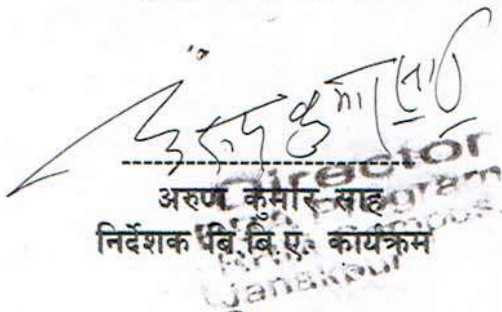 अरुण कुमार साह
निर्देशक बि.बि.ए. कार्यक्रम
Director
Program
Campus
Janakpur